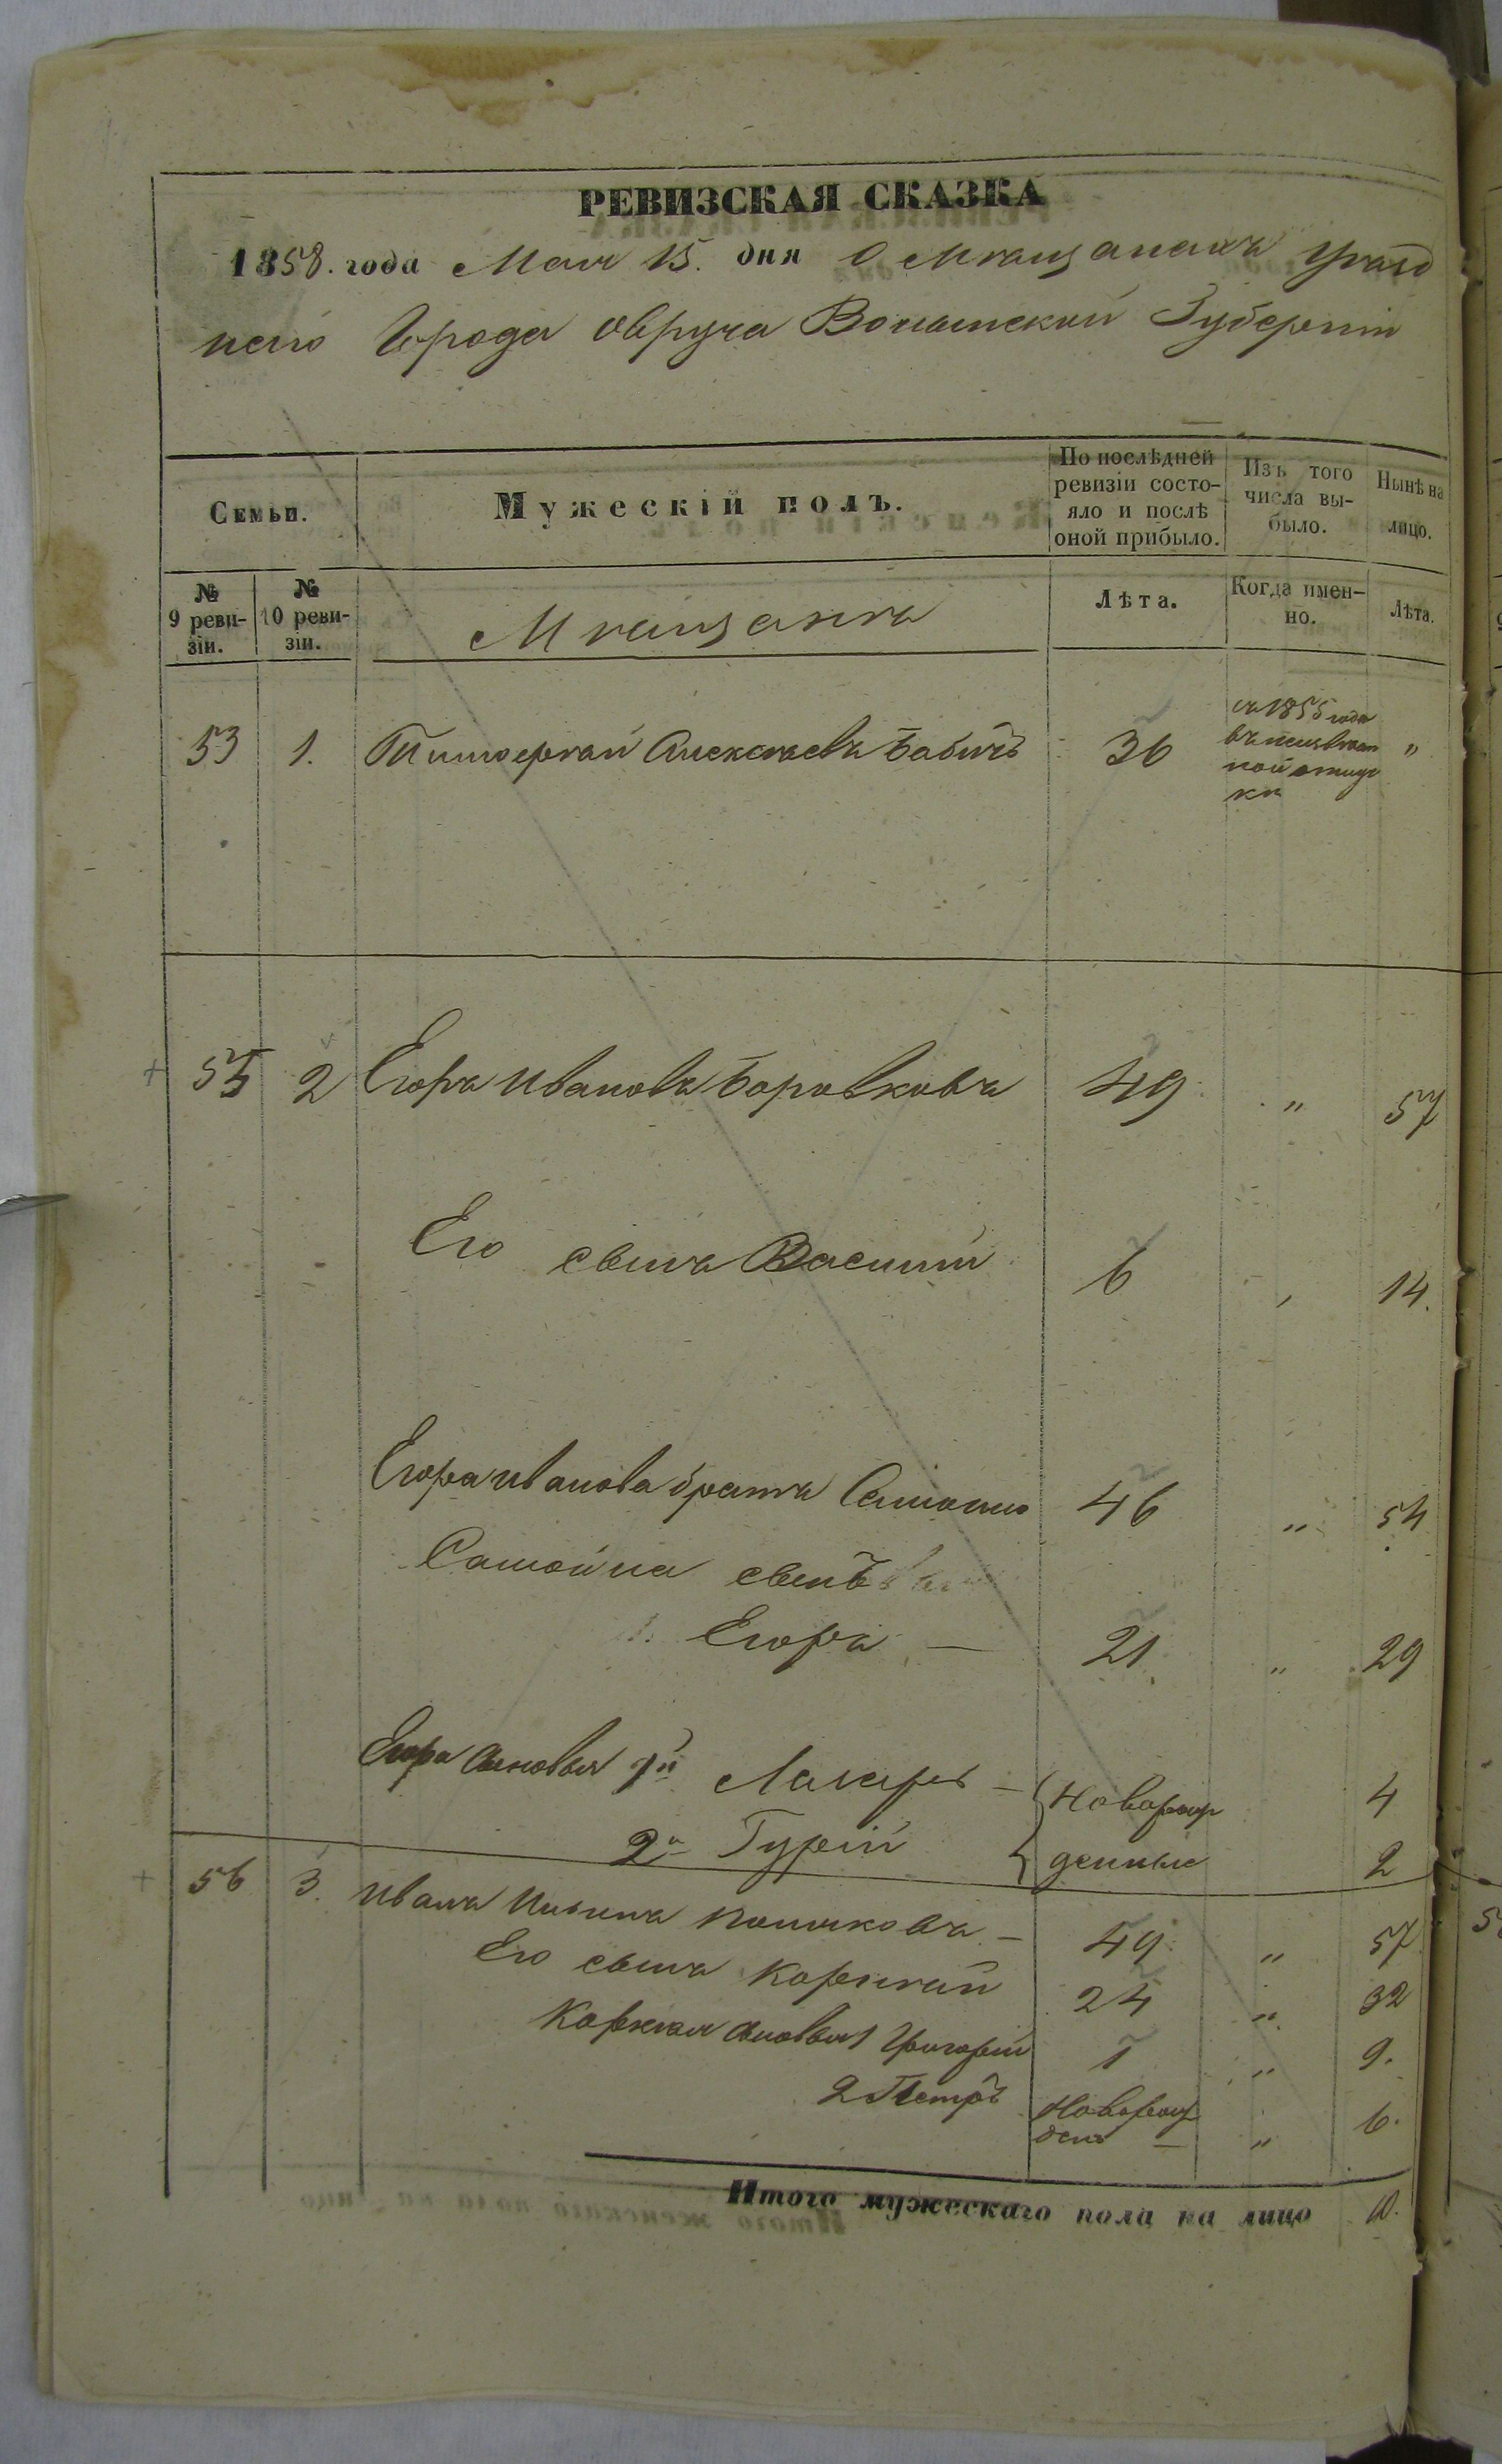 РЕВИЗСКАЯ СКАЗКА
1858. года Мая 15. дня О Мѣщанахъ Уѣзд
наго Города Овруча Волынской Губерніи
Семьи.
Мужескій полъ.
По послѣдней
ревизіи состо-
яло и послѣ
оной прибыло.
Изъ того
числа вы-
было.
Нынѣ на
лицо.
№
9 реви-
зіи.
№
10 реви-
зіи.
Мѣщане
Лѣта.
Когда имен-
но.
Лѣта.
53 1. Тимофей Алексѣевъ Бабичъ 36 съ 1855 года "
въ неизвѣст
ной отлуч
кѣ
55 2 Егоръ Ивановъ Боровковъ 49 " 57
Его сынъ Василий 6 14.
Егора Иванова братъ Самойло 46 " 54
Самойла сынъ
Егоръ — 21 " 29
Егора сыновья 1й Лазарь — Новорож 4
2й Гурій денные 2
56 3. Иванъ Ильинъ Поляковъ — 49 " 57
Его сынъ Корнѣй 24 " 32
Корнѣя сыновья 1 Григорій 1 " 9.
2 Петръ Новорож
ден — " 6.
Итого мужескаго пола на лицо 10.